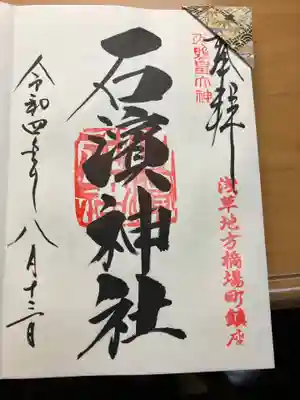 奉拝
天照皇大神
浅草地方橋場町鎮座
石濱神社
令和四年八月十三日